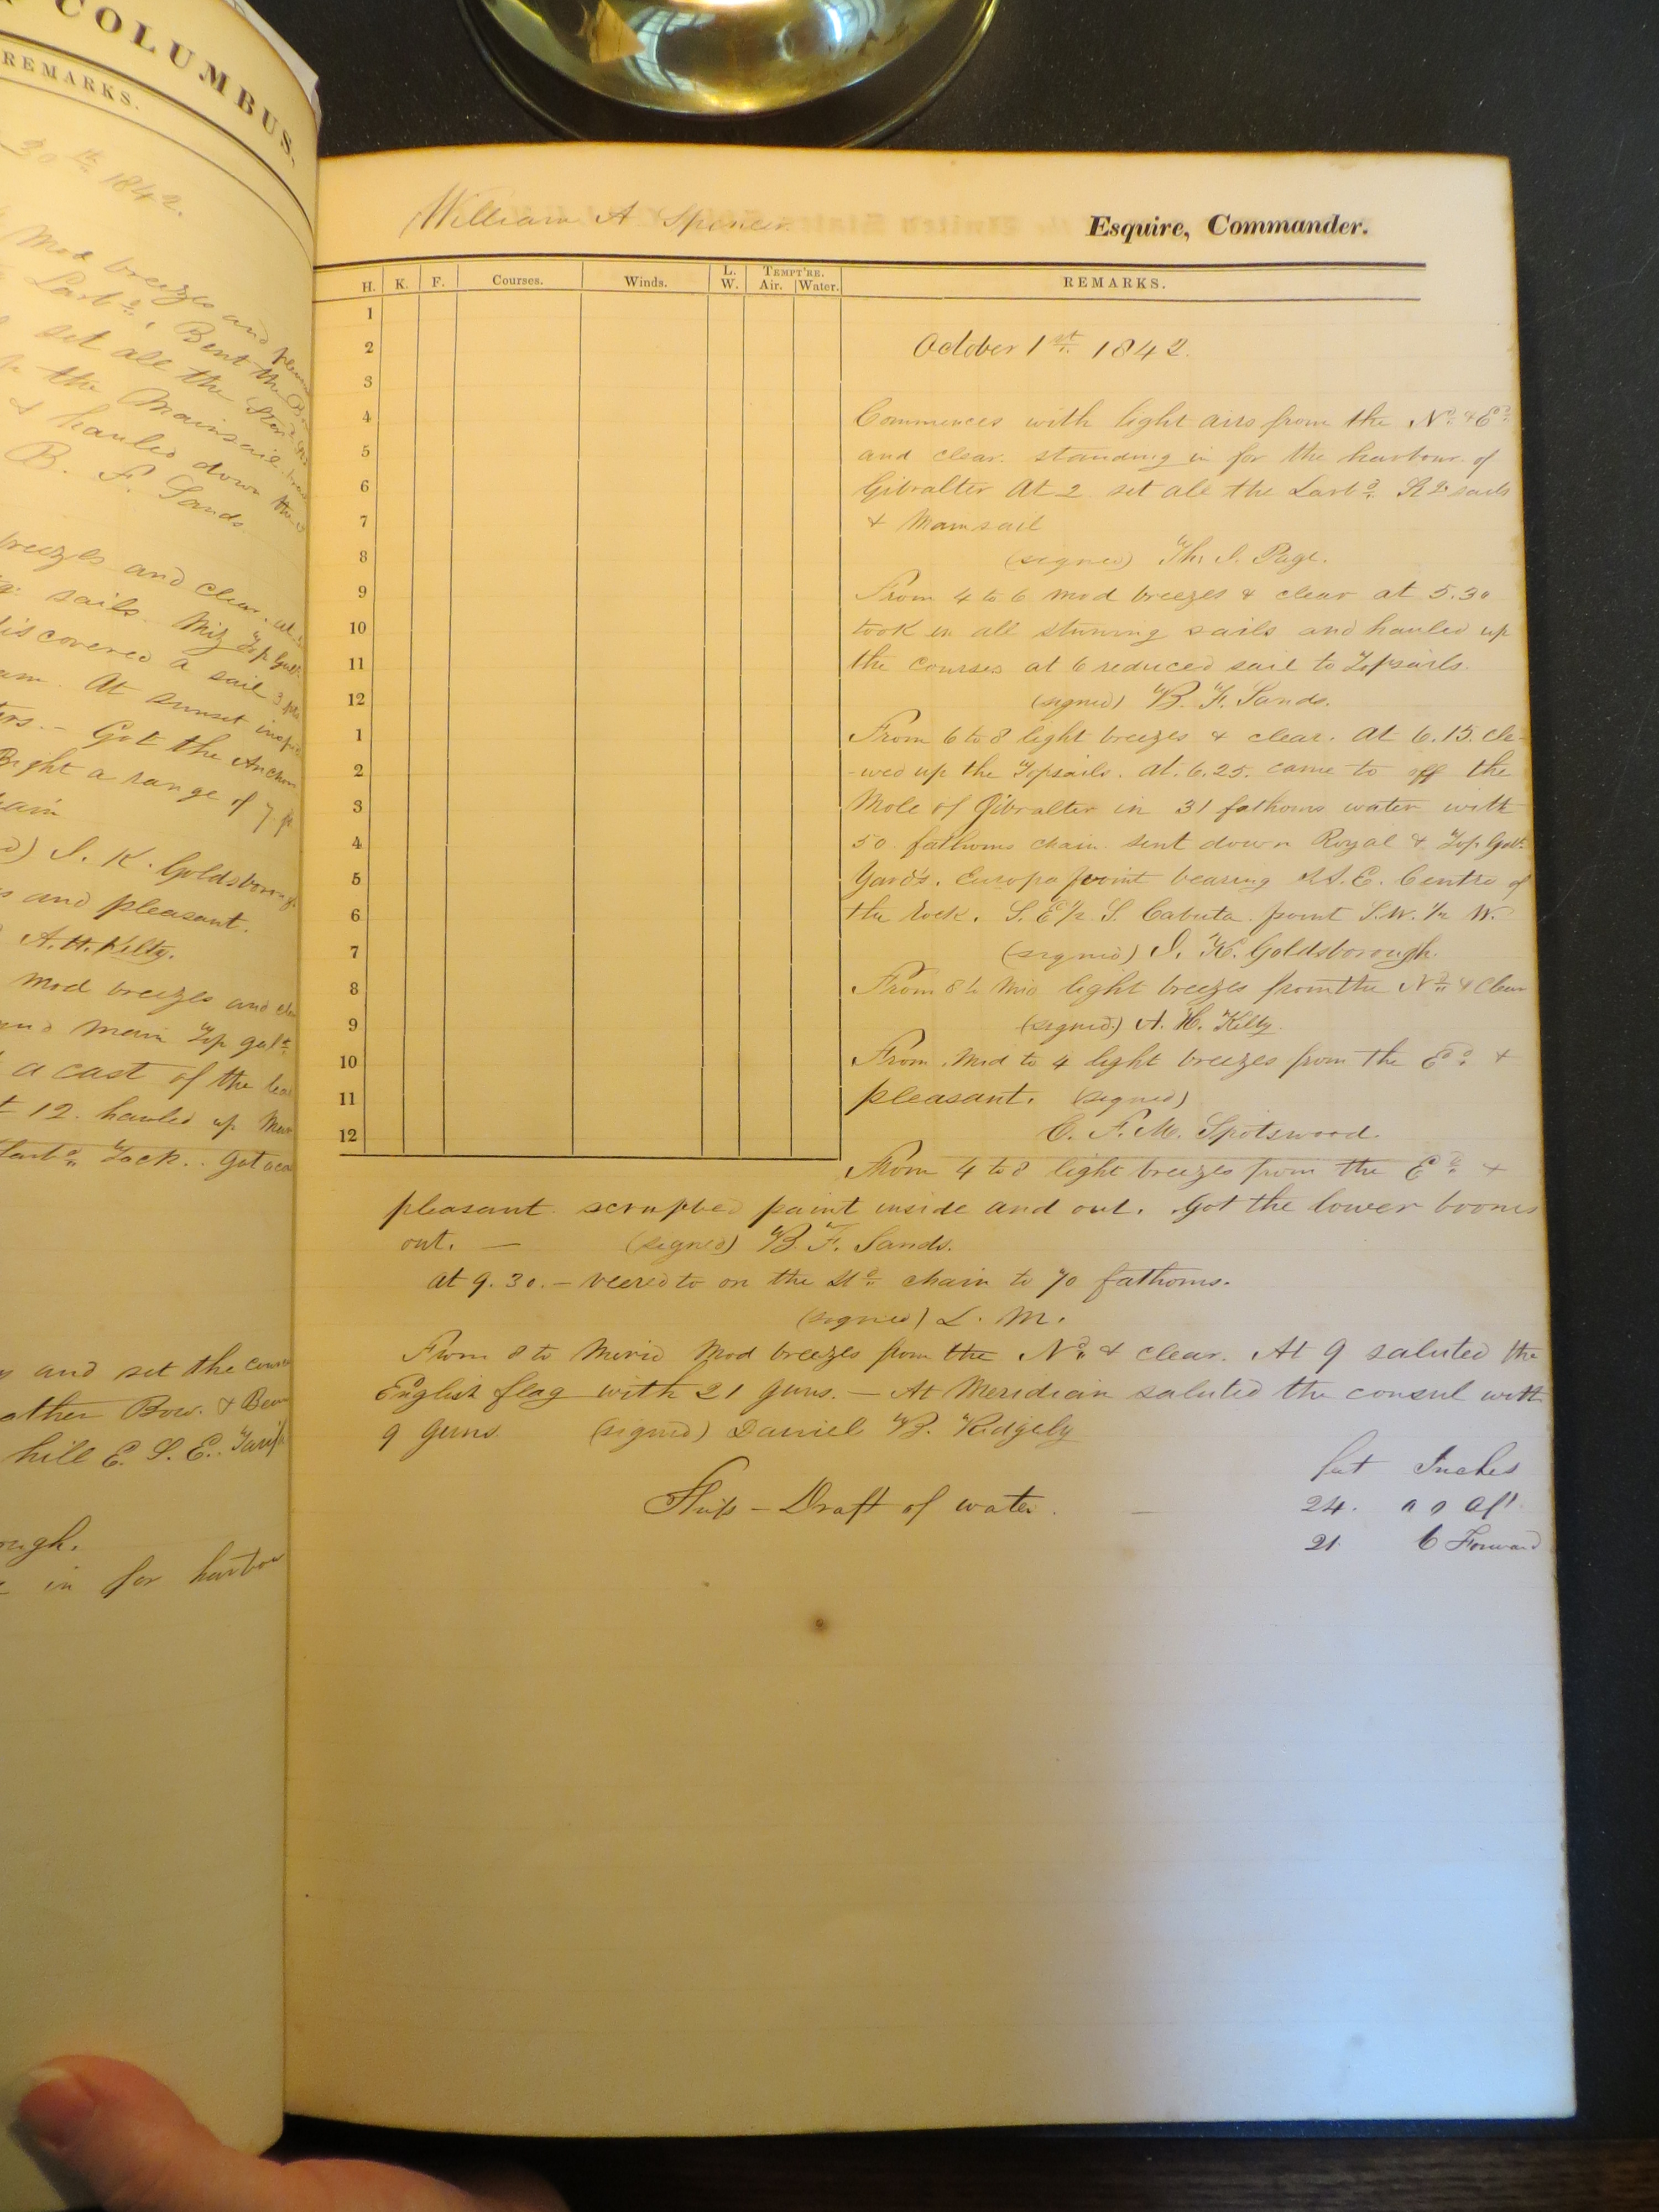 COLUMBUS.
REMARKS.
30th 1842.
Mod breezes and
Larbd, Bent the
set all the
the Mainsail
& hauled down the
B. F. Sands
breezes and clear. at
sails. Miz Top Gall
discovered a sail 3
At sunset
Got the Anchor
Bight a range of 7
S. K. Goldsborough
and pleasant.
A. H. Kilty.
Mod breezes and
and main Top galt
a cast of the lead
12. hauled up
Larbd Tack.. Got
and set the
other Bow. &
hill E. S. E.
in for harbor
William A Spencer Esquire, Commander.
H. K. F. Courses. Winds. L. W. TEMPT'RE. Air. Water. REMARKS.
1
2
3
4
5
6
7
8
9
10
11
12
1
2
3
4
5
6
7
8
9
10
11
12
October 1st 1842.
Commences with light airs from the Nd & Ed
and clear. standing in for the harbour of
Gibralter At 2 set all the Larbd Stg sails
& Mainsail
(signed) Th. J. Page.
From 4 to 6 mod breezes & clear at 5.30
took in all stunsing sails and hauled up
the courses at 6 reduced sail to Topsails.
(signed) B. F. Sands.
From 6 to 8 light breezes & clear. At 6.15. cle-
-wed up the Topsails. At. 6.25. came to off the
Mole of Gibralter in 31 fathoms water with
50 fathoms chain. sent down Royal & Top Galt
Yards. Europa point bearing S.S.E. Centre of
the Rock. S. E 1/2 S. Cabuta point S.W. 1/2 W.
(signed) J. K. Goldsborough.
From 8 to Mid light breezes from the Nd & Clear
(signed) A. H. Kilty.
From Mid to 4 light breezes from the Ed &
pleasant. (signed)
C. F. M. Spotswood.
From 4 to 8 light breezes from the Ed &
pleasant. scrubbed paint inside and out. Got the lower booms
out. — (signed) B. F. Sands.
At 9.30. — veered to on the Std chain to 70 fathoms.
(signed) L. M.
From 8 to Merid Mod breezes from the Nd & clear. At 9 saluted the
English flag with 21 guns. — At Meridian saluted the consul with
9 guns (signed) Daniel B. Ridgely
feet Inches
Ships — Draft of water. — 24. " " Aft
21 6 Forward